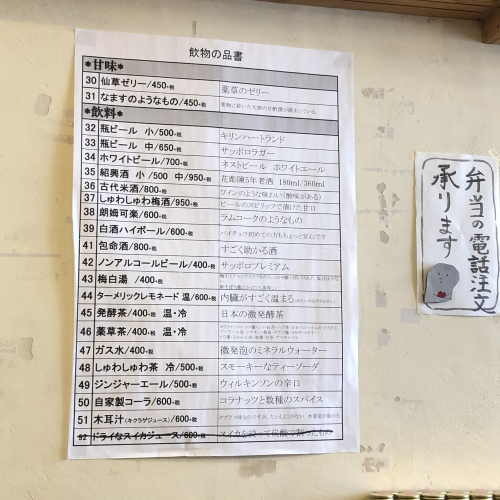 飲物の品書
*甘味*
30 仙草ゼリー/450+税 薬草のゼリー
31 なますのようなもの/450+税
*飲料*
32 瓶ビール 小/500+税 キリンハートランド
33 瓶ビール 中/650+税 サッポロラガー
34 ホワイトビール/700+税 ネストビール ホワイトエール
35 紹興酒 小/500 中/950+税 花彫陳5年老酒 180ml/360ml
36 古代米酒/800+税 ワインのような味わい(酸味がある)
37 しゅわしゅわ梅酒/950+税 ビールのスピリッツで漬けた甘口
38 朗姆可楽/600+税 ラムコークのようなもの
39 白酒ハイボール/600+税 パイチュウ初めての方もちょっと安心です
41 包命酒/800+税 すごく助かる酒
42 ノンアルコールビール/400+税 サッポロプレミアム
43 梅白湯 /400+税
44 ターメリックレモネード 温/600+税 内臓がすごく温まる
45 発酵茶/400+税 温・冷 日本の微発酵茶
46 薬草茶/400+税 温・冷
47 ガス水/400+税 微発泡のミネラルウォーター
48 しゅわしゅわ茶 冷/500+税 スモーキーなティーソーダ
49 ジンジャーエール/500+税 ウィルキンソンの辛口
50 自家製コーラ/600+税 コラナッツと数種のスパイス
51 木耳汁(キクラゲジュース)/600+税
52 ドライなスイカジュース/600+税 スイカを絞って炭酸で割ったもの
弁当の電話注文
承ります